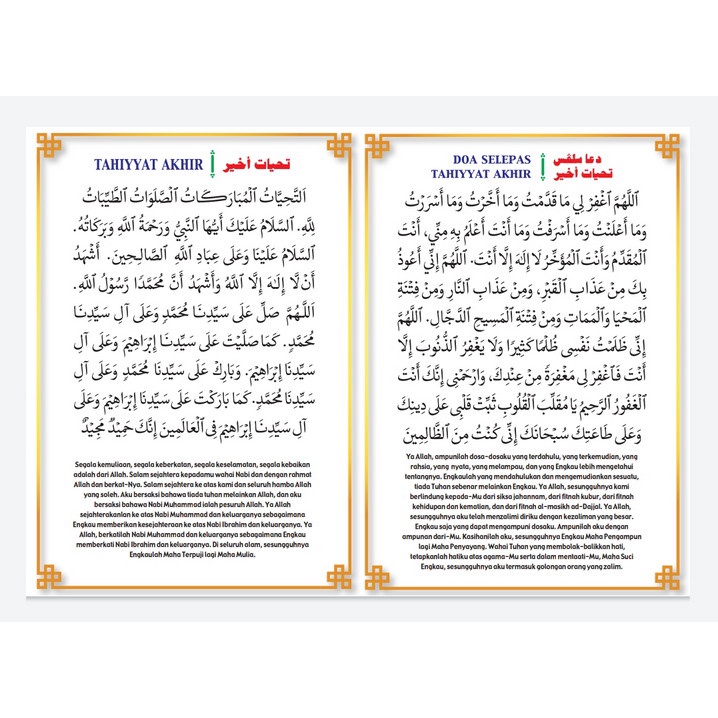 TAHIYYAT AKHIR تحيات أخير
اَلتَّحِيَّاتُ الْمُبَارَكَاتُ الصَّلَوَاتُ الطَّيِّبَاتُ
لِلّٰهِ. السَّلَامُ عَلَيْكَ أَيُّهَا النَّبِيُّ وَرَحْمَةُ اللّٰهِ وَبَرَكَاتُهُ.
السَّلَامُ عَلَيْنَا وَعَلَى عِبَادِ اللّٰهِ الصَّالِحِينَ. أَشْهَدُ
أَنْ لَا إِلٰهَ إِلَّا اللّٰهُ وَأَشْهَدُ أَنَّ مُحَمَّدًا رَّسُوْلُ اللّٰهِ.
اَللّٰهُمَّ صَلِّ عَلَى سَيِّدِنَا مُحَمَّدٍ وَعَلَى آلِ سَيِّدِنَا
مُحَمَّدٍ. كَمَا صَلَّيْتَ عَلَى سَيِّدِنَا إِبْرَاهِيمَ وَعَلَى آلِ
سَيِّدِنَا إِبْرَاهِيمَ. وَبَارِكْ عَلَى سَيِّدِنَا مُحَمَّدٍ وَعَلَى آلِ
سَيِّدِنَا مُحَمَّدٍ. كَمَا بَارَكْتَ عَلَى سَيِّدِنَا إِبْرَاهِيمَ وَعَلَى
آلِ سَيِّدِنَا إِبْرَاهِيمَ فِي الْعَالَمِينَ إِنَّكَ حَمِيْدٌ مَجِيْدٌ
Segala kemuliaan, segala keberkatan, segala keselamatan, segala kebaikan
adalah dari Allah. Salam sejahtera kepadamu wahai Nabi dan dengan rahmat
Allah dan berkat-Nya. Salam sejahtera ke atas kami dan seluruh hamba Allah
yang soleh. Aku bersaksi bahawa tiada tuhan melainkan Allah, dan aku
bersaksi bahawa Nabi Muhammad ialah pesuruh Allah. Ya Allah
sejahterakanlah ke atas Nabi Muhammad dan keluarganya sebagaimana
Engkau memberikan kesejahteraan ke atas Nabi Ibrahim dan keluarganya. Ya
Allah, berkatilah Nabi Muhammad dan keluarganya sebagaimana Engkau
memberkati Nabi Ibrahim dan keluarganya. Di seluruh alam, sesungguhnya
Engkaulah Maha Terpuji lagi Maha Mulia.
DOA SELEPAS دعا سلفس
TAHIYYAT AKHIR تحيات أخير
اللَّهُمَّ اغْفِرْ لِي مَا قَدَّمْتُ وَمَا أَخَّرْتُ وَمَا أَسْرَرْتُ
وَمَا أَعْلَنْتُ وَمَا أَسْرَفْتُ وَمَا أَنْتَ أَعْلَمُ بِهِ مِنِّي، أَنْتَ
الْمُقَدِّمُ وَأَنْتَ الْمُؤَخِّرُ لَا إِلٰهَ إِلَّا أَنْتَ. اللَّهُمَّ إِنِّي أَعُوذُ
بِكَ مِنْ عَذَابِ الْقَبْرِ، وَمِنْ عَذَابِ النَّارِ وَمِنْ فِتْنَةِ
الْمَحْيَا وَالْمَمَاتِ وَمِنْ فِتْنَةِ الْمَسِيحِ الدَّجَّالِ. اللَّهُمَّ
إِنِّي ظَلَمْتُ نَفْسِي ظُلْمًا كَثِيْرًا وَلَا يَغْفِرُ الذُّنُوبَ إِلَّا
أَنْتَ فَاغْفِرْ لِي مَغْفِرَةً مِنْ عِنْدِكَ، وَارْحَمْنِي إِنَّكَ أَنْتَ
الْغَفُورُ الرَّحِيمُ يَا مُقَلِّبَ الْقُلُوبِ ثَبِّتْ قَلْبِي عَلَى دِينِكَ
وَعَلَى طَاعَتِكَ سُبْحَانَكَ إِنِّي كُنْتُ مِنَ الظَّالِمِينَ
Ya Allah, ampunilah dosa-dosaku yang terdahulu, yang terkemudian, yang
rahsia, yang nyata, yang melampau, dan yang Engkau lebih mengetahui
tentangnya. Engkaulah yang mendahulukan dan mengemudiankan sesuatu,
tiada Tuhan sebenar melainkan Engkau. Ya Allah, sesungguhnya kami
berlindung kepada-Mu dari siksa jahannam, dari fitnah kubur, dari fitnah
kehidupan dan kematian, dan dari fitnah al-masikh ad-Dajjal. Ya Allah,
sesungguhnya aku telah menzalimi diriku dengan kezaliman yang besar.
Engkau saja yang dapat mengampuni dosaku. Ampunilah aku dengan
ampunan dari-Mu. Kasihanilah aku, sesungguhnya Engkau Maha Pengampun
lagi Maha Penyayang. Wahai Tuhan yang membolak-balikkan hati,
tetapkanlah hatiku atas agama-Mu serta dalam mentaati-Mu, Maha Suci
Engkau, sesungguhnya aku termasuk golongan orang yang zalim.